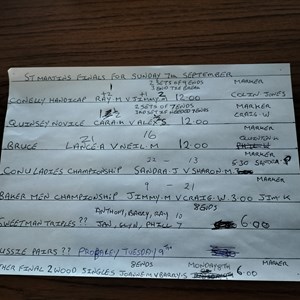 ST MARTINS FINALS FOR SUNDAY 7TH SEPTEMBER
2 SETS OF 9 ENDS MARKER
3 END TIE BREAK
+2 +1 2
CONELLY HANDICAP RAY. M V JIMMY. M 12:00 COLIN JONES
2 SETS OF 7 ENDS MARKER
QUINSEY NOVICE CARA. H V ALEX S 12:00 CRAIG. W
21 16 MARKER
BRUCE LANCE. A V NEIL. M 12:00
22 - 13 MARKER
CONU LADIES CHAMPIONSHIP SANDRA. J V SHARON. M 3:30
9 - 21 MARKER
BAKER MEN CHAMPIONSHIP JIMMY. M V CRAIG. W 3:00 JIM. K
ANTHONY, BARRY, RAY 10 8 ENDS
SWEETMAN TRIPLES ?? JAN, GWYN, PHILL 7 6:00
USSIE PAIRS ?? PROBABLEY TUESDAY 9TH
9 ENDS MONDAY 8TH MARKER
THER FINAL 2 WOOD SINGLES V BARRY. S 6:00